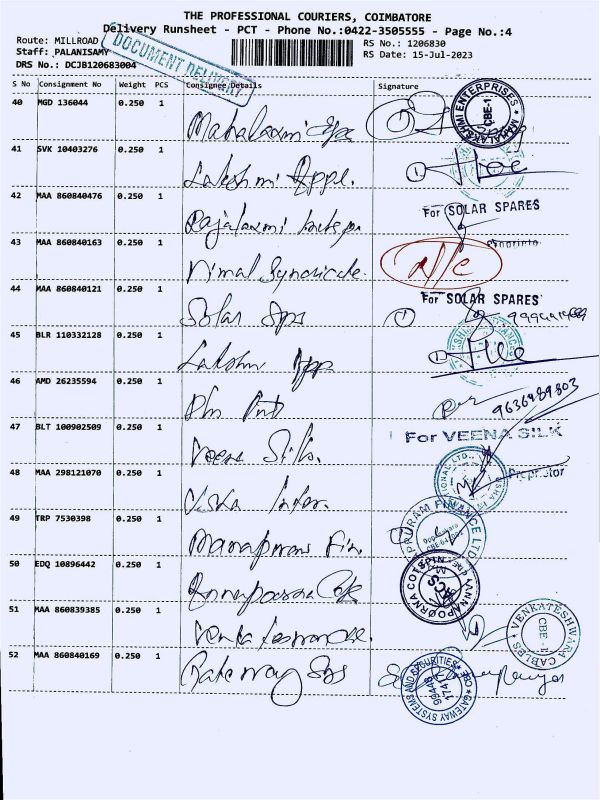 THE PROFESSIONAL COURIERS, COIMBATORE
Delivery Runsheet - PCT - Phone No.:0422-3505555 - Page No.:4
Route: MILLROAD
RS No.: 1206830
Staff: PALANISAMY
RS Date: 15-Jul-2023
DRS No.: DCJB120683004
DOCUMENT DELIVERY
S No Consignment No Weight PCS Consignee Details Signature
40 MGD 136044 0.250 1
Mahalaxmi
MAHALAKSHMI ENTERPRISES CBE-1
41 SVK 10403276 0.250 1
Lakshmi Appl.
42 MAA 860840476 0.250 1
Rajalaxmi
For SOLAR SPARES
43 MAA 860840163 0.250 1
Vimal Syndicate.
N/C
44 MAA 860840121 0.250 1
Solar Sps
For SOLAR SPARES
45 BLR 110332128 0.250 1
Lakshmi App
46 AMD 26235594 0.250 1
9636989803
47 BLT 100902509 0.250 1
Veena Silks.
For VEENA SILK
Proprietor
48 MAA 298121070 0.250 1
Usha Inter.
49 TRP 7530398 0.250 1
Manappuram Fin.
APPURAM FINANCE LTD
50 EDQ 10896442 0.250 1
Annapoorna Cots
ANNAPOORNA COTSPIN
51 MAA 860839385 0.250 1
Venkateswara
VENKATESHWARA CABLES CBE-1
52 MAA 860840169 0.250 1
Gateway Sys
GATEWAY SYSTEMS AND SECURITIES